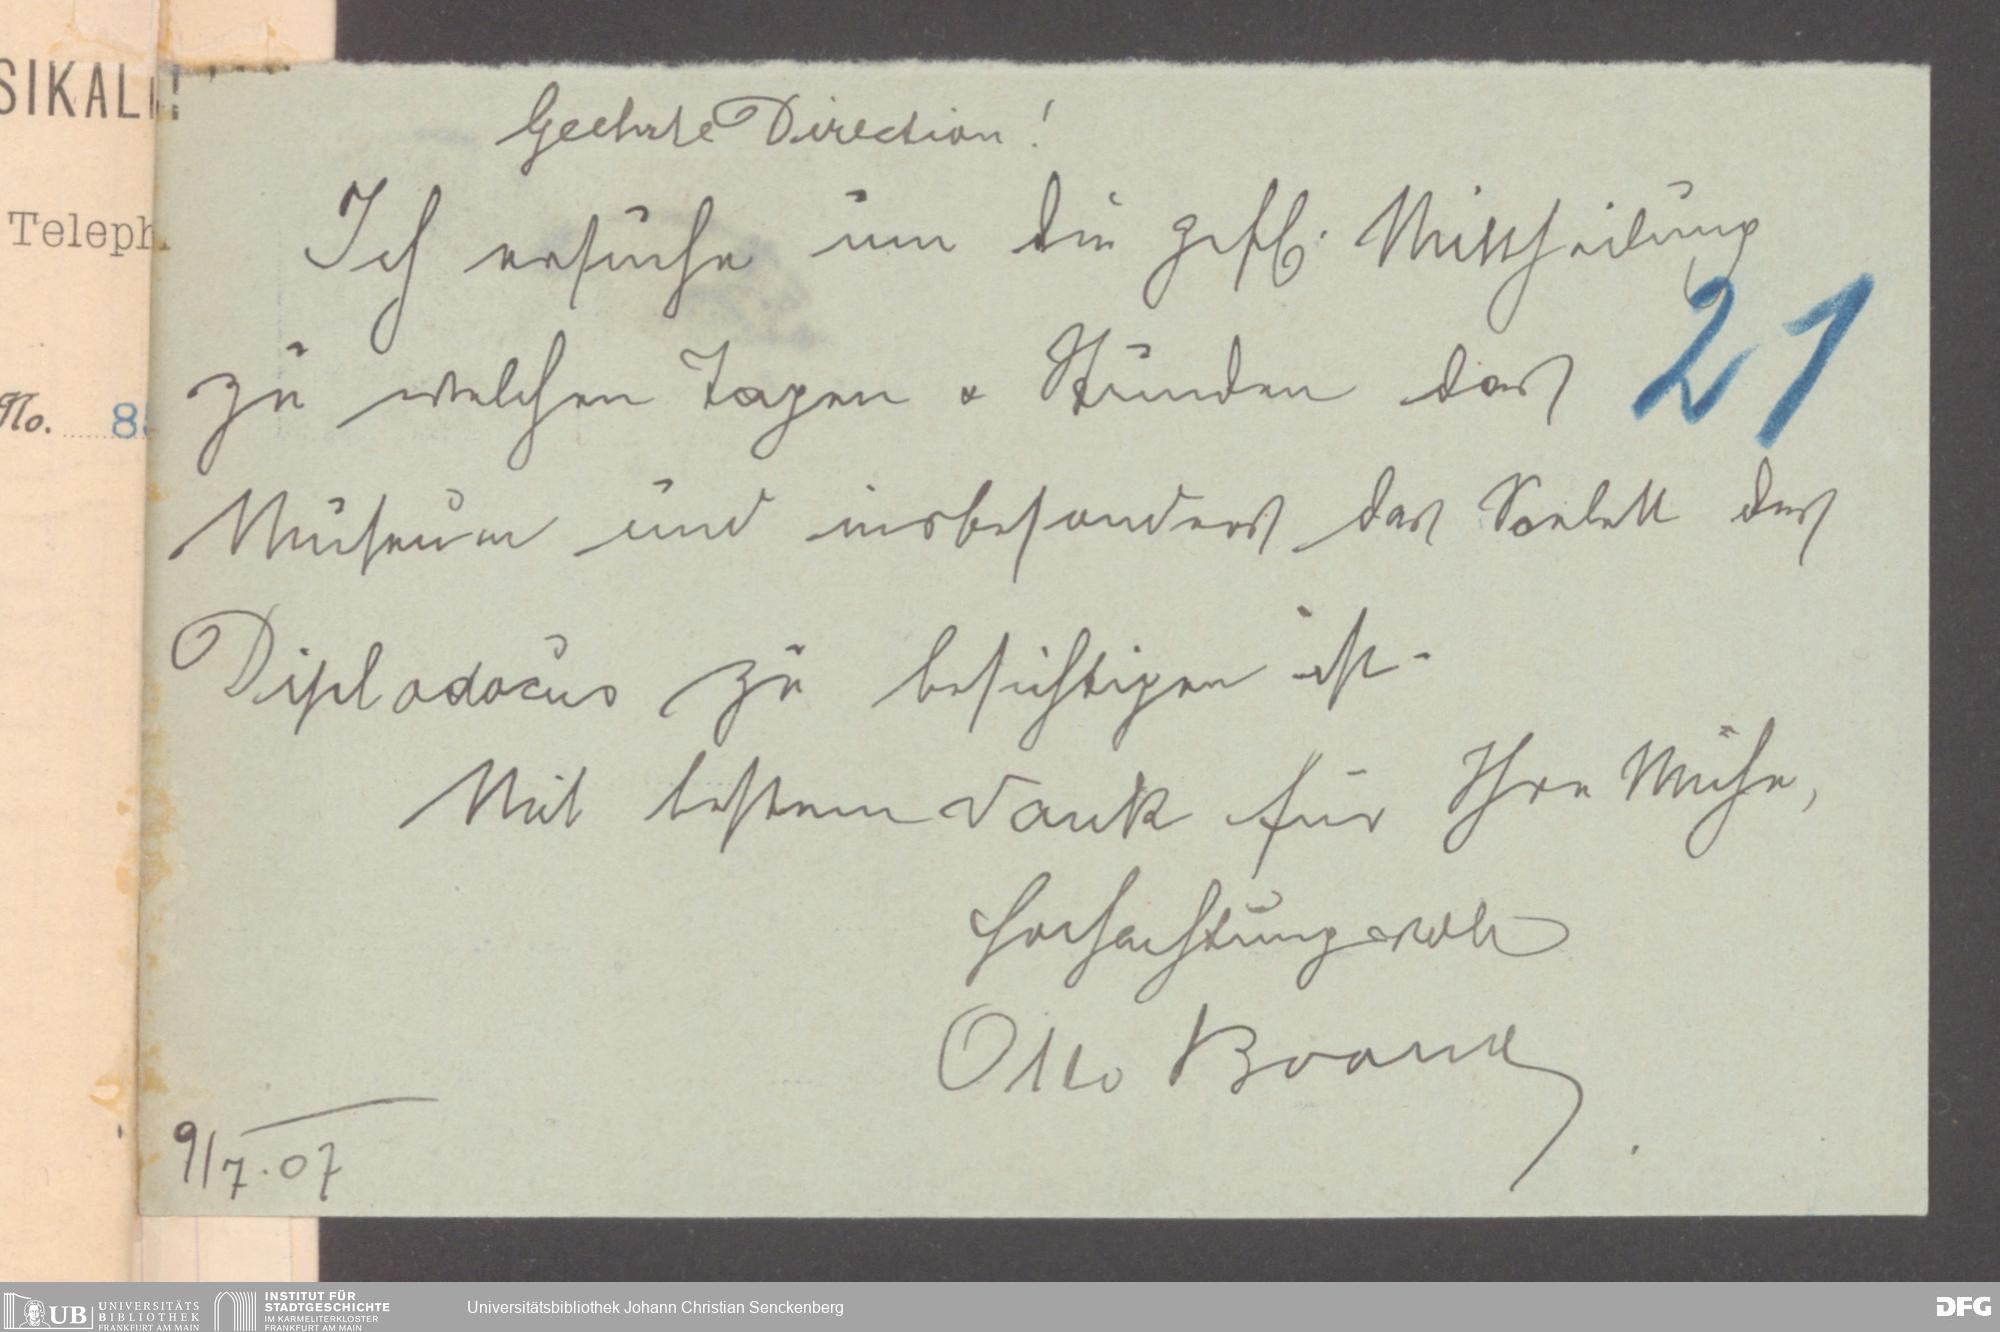 SIKALI
Teleph
No. 8
Geehrte Direction!
Ich ersuche um die gefl. Mittheilung
zu welchen Tagen & Stunden das
21
Museum und insbesonders das Skelett des
Diplodocus zu besichtigen ist.
Mit bestem Dank für Ihre Mühe,
hochachtungsvoll
Otto
9/7.07
UB UNIVERSITÄTS
BIBLIOTHEK
FRANKFURT AM MAIN
INSTITUT FÜR
STADTGESCHICHTE
IM KARMELITERKLOSTER
FRANKFURT AM MAIN
Universitätsbibliothek Johann Christian Senckenberg
DFG